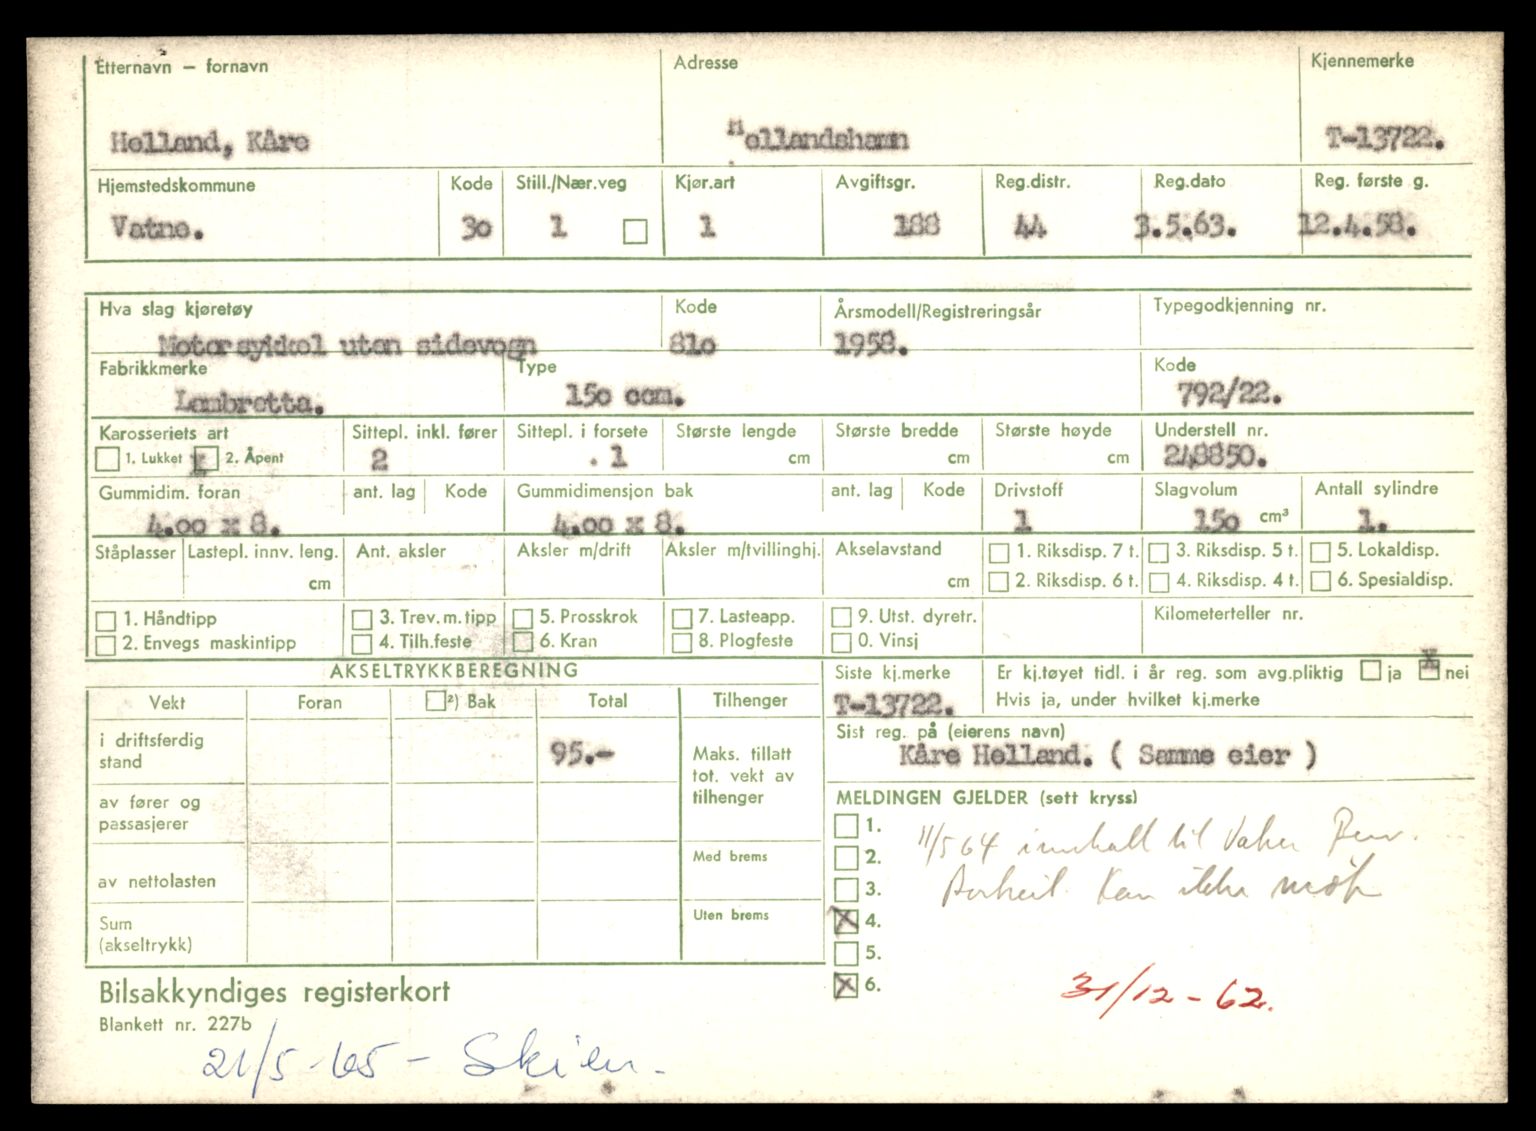 Etternavn — fornavn Adresse Kjennemerke
Helland, Kåre Hellandshamn T-13722.
Hjemstedskommune Kode Still./Nær.veg Kjør.art Avgiftsgr. Reg.distr. Reg.dato Reg. første g.
Vatne. 30 1 1 188 44 3.5.63. 12.4.58.
Hva slag kjøretøy Kode Årsmodell/Registreringsår Typegodkjenning nr.
Motorsykkel uten sidevogn 810 1958.
Fabrikkmerke Type Kode
Lambretta. 150 ccm. 792/22.
Karosseriets art Sittepl. inkl. fører Sittepl. i forsete Største lengde Største bredde Største høyde Understell nr.
1. Lukket x 2. Åpent 2 . 1 cm cm cm 248850.
Gummidim. foran ant. lag Kode Gummidimensjon bak ant. lag Kode Drivstoff Slagvolum Antall sylindre
4.00 x 8. 4.00 x 8. 1 150 cm³ 1.
Ståplasser Lastepl. innv. leng. Ant. aksler Aksler m/drift Aksler m/tvillinghj. Akselavstand 1. Riksdisp. 7 t. 3. Riksdisp. 5 t. 5. Lokaldisp.
cm cm 2. Riksdisp. 6 t. 4. Riksdisp. 4 t. 6. Spesialdisp.
1. Håndtipp 3. Trev. m. tipp 5. Prosskrok 7. Lasteapp. 9. Utst. dyretr. Kilometerteller nr.
2. Envegs maskintipp 4. Tilh.feste 6. Kran 8. Plogfeste 0. Vinsj
AKSELTRYKKBEREGNING Siste kj.merke Er kj.tøyet tidl. i år reg. som avg.pliktig ja x nei
Vekt Foran ²) Bak Total Tilhenger T-13722. Hvis ja, under hvilket kj.merke
i driftsferdig stand 95.- Maks. tillatt tot. vekt av tilhenger
Sist reg. på (eierens navn)
Kåre Helland. ( Samme eier )
av fører og passasjerer
MELDINGEN GJELDER (sett kryss)
1. 11/5 64 innkalt til
2.
Med brems
av nettolasten
3. Kan ikke
Sum (akseltrykk) Uten brems
X 4.
5.
X 6. 31/12 - 62.
Bilsakkyndiges registerkort
Blankett nr. 227b
21/5-65 - Skien.